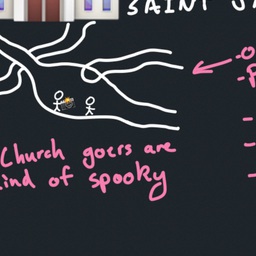 SAINT
Church goers are
kind of spooky